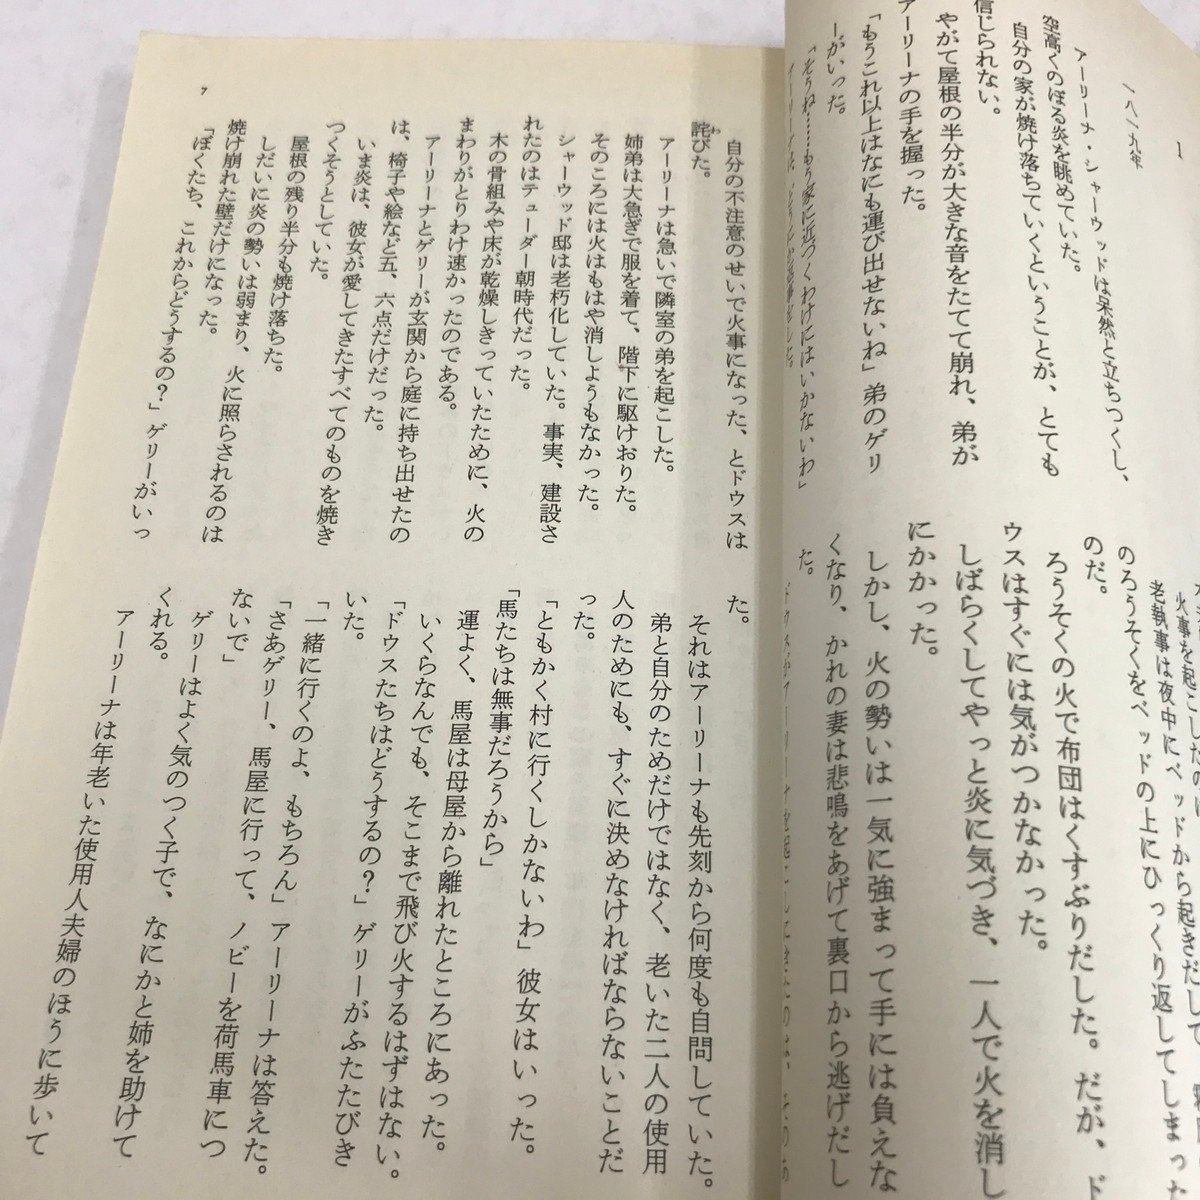 1
一八一九年
アーリーナ・シャーウッドは呆然と立ちつくし、
空高くのぼる炎を眺めていた。
自分の家が焼け落ちていくということが、とても
信じられない。
やがて屋根の半分が大きな音をたてて崩れ、弟が
アーリーナの手を握った。
「もうこれ以上はなにも運び出せないね」弟のゲリ
ーがいった。
「そうね……もう家に近づくわけにはいかないわ」
火事を起こしたのは
老執事は夜中にベッドから起きだして
のろうそくをベッドの上にひっくり返してしまった
のだ。
ろうそくの火で布団はくすぶりだした。だが、ド
ウスはすぐには気がつかなかった。
しばらくしてやっと炎に気づき、一人で火を消し
にかかった。
しかし、火の勢いは一気に強まって手には負えな
くなり、かれの妻は悲鳴をあげて裏口から逃げだし
た。
自分の不注意のせいで火事になった、とドウスは
詫びた。
わ
アーリーナは急いで隣室の弟を起こした。
姉弟は大急ぎで服を着て、階下に駆けおりた。
そのころには火はもはや消しようもなかった。
シャーウッド邸は老朽化していた。事実、建設さ
れたのはテューダー朝時代だった。
木の骨組みや床が乾燥しきっていたために、火の
まわりがとりわけ速かったのである。
アーリーナとゲリーが玄関から庭に持ち出せたの
は、椅子や絵など五、六点だけだった。
いま炎は、彼女が愛してきたすべてのものを焼き
つくそうとしていた。
屋根の残り半分も焼け落ちた。
しだいに炎の勢いは弱まり、火に照らされるのは
焼け崩れた壁だけになった。
「ぼくたち、これからどうするの？」ゲリーがいっ
た。
それはアーリーナも先刻から何度も自問していた。
弟と自分のためだけではなく、老いた二人の使用
人のためにも、すぐに決めなければならないことだ
った。
「ともかく村に行くしかないわ」彼女はいった。
「馬たちは無事だろうから」
運よく、馬屋は母屋から離れたところにあった。
いくらなんでも、そこまで飛び火するはずはない。
「ドウスたちはどうするの？」ゲリーがふたたびき
いた。
「一緒に行くのよ、もちろん」アーリーナは答えた。
「さあゲリー、馬屋に行って、ノビーを荷馬車につ
ないで」
ゲリーはよく気のつく子で、なにかと姉を助けて
くれる。
アーリーナは年老いた使用人夫婦のほうに歩いて
7